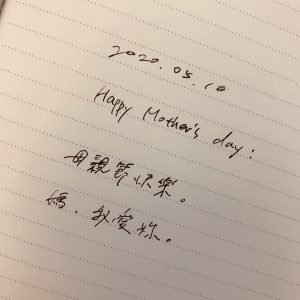 2020.05.10
Happy Mother's day:
母親節快樂。
媽.我愛妳。